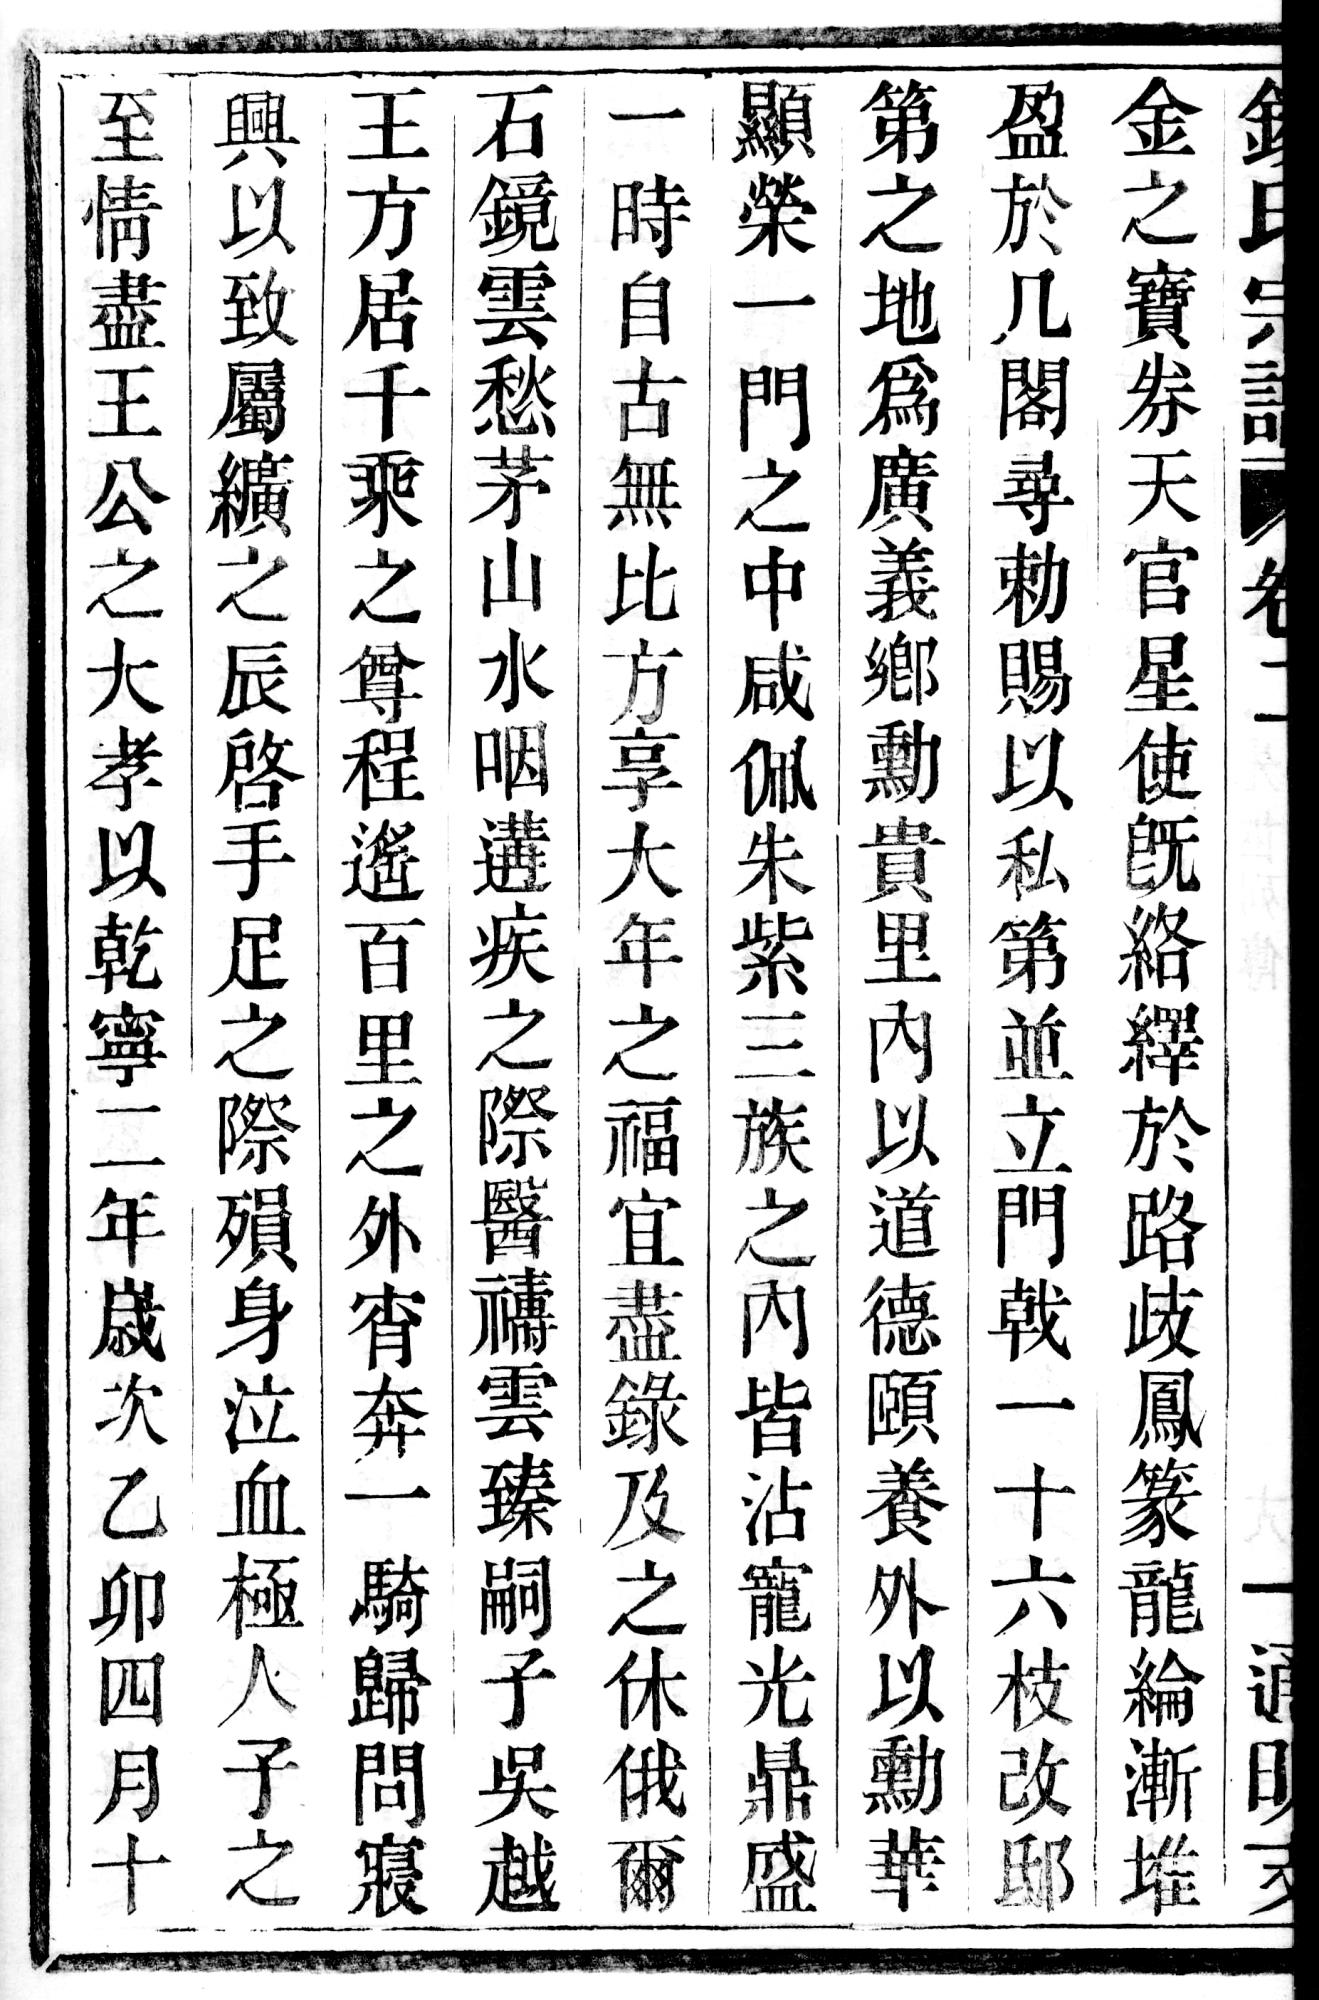 錢氏宗譜 卷二 通明支
金之寶劵天官星使旣絡繹於路歧鳳篆龍綸漸堆
盈於几閣尋勅賜以私第並立門戟一十六枝改邸
第之地爲廣義鄉勳貴里內以道德頤養外以勳華
顯榮一門之中咸佩朱紫三族之內皆沾寵光鼎盛
一時自古無比方享大年之福宜盡錄及之休俄爾
石鏡雲愁茅山水咽遘疾之際醫禱雲臻嗣子吳越
王方居千乘之尊程遙百里之外宵奔一騎歸問寢
興以致屬纊之辰啓手足之際殞身泣血極人子之
至情盡王公之大孝以乾寧二年歲次乙卯四月十